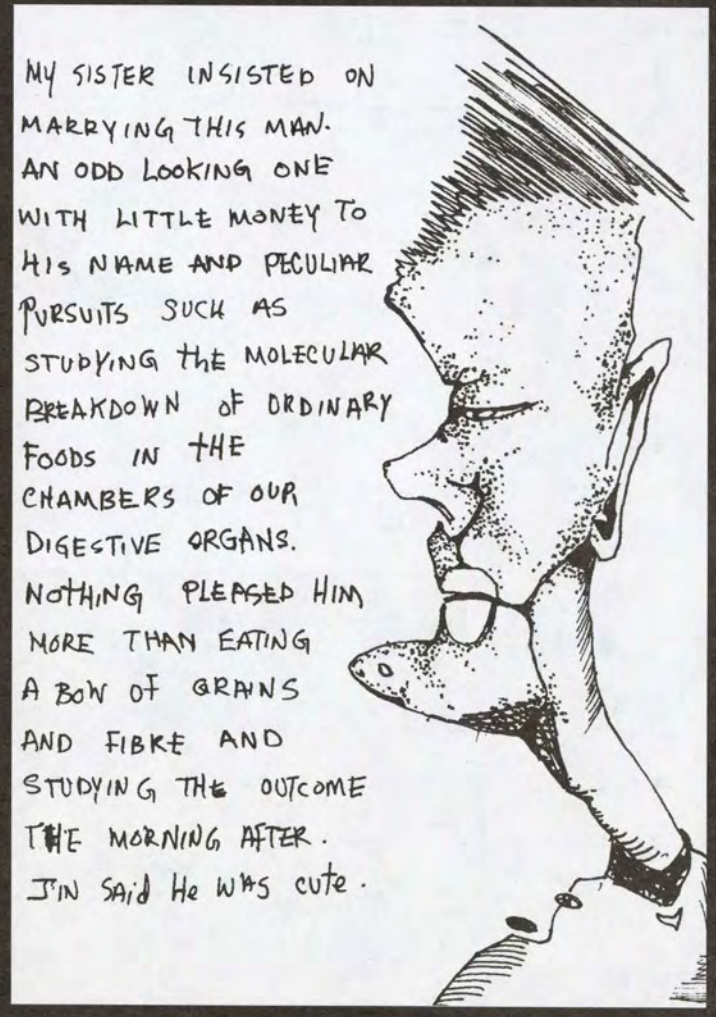 MY SISTER INSISTED ON
MARRYING THIS MAN.
AN ODD LOOKING ONE
WITH LITTLE MONEY TO
HIS NAME AND PECULIAR
PURSUITS SUCH AS
STUDYING THE MOLECULAR
BREAKDOWN OF ORDINARY
FOODS IN THE
CHAMBERS OF OUR
DIGESTIVE ORGANS.
NOTHING PLEASED HIM
MORE THAN EATING
A BOW OF GRAINS
AND FIBRE AND
STUDYING THE OUTCOME
THE MORNING AFTER.
JIN SAID HE WAS CUTE.